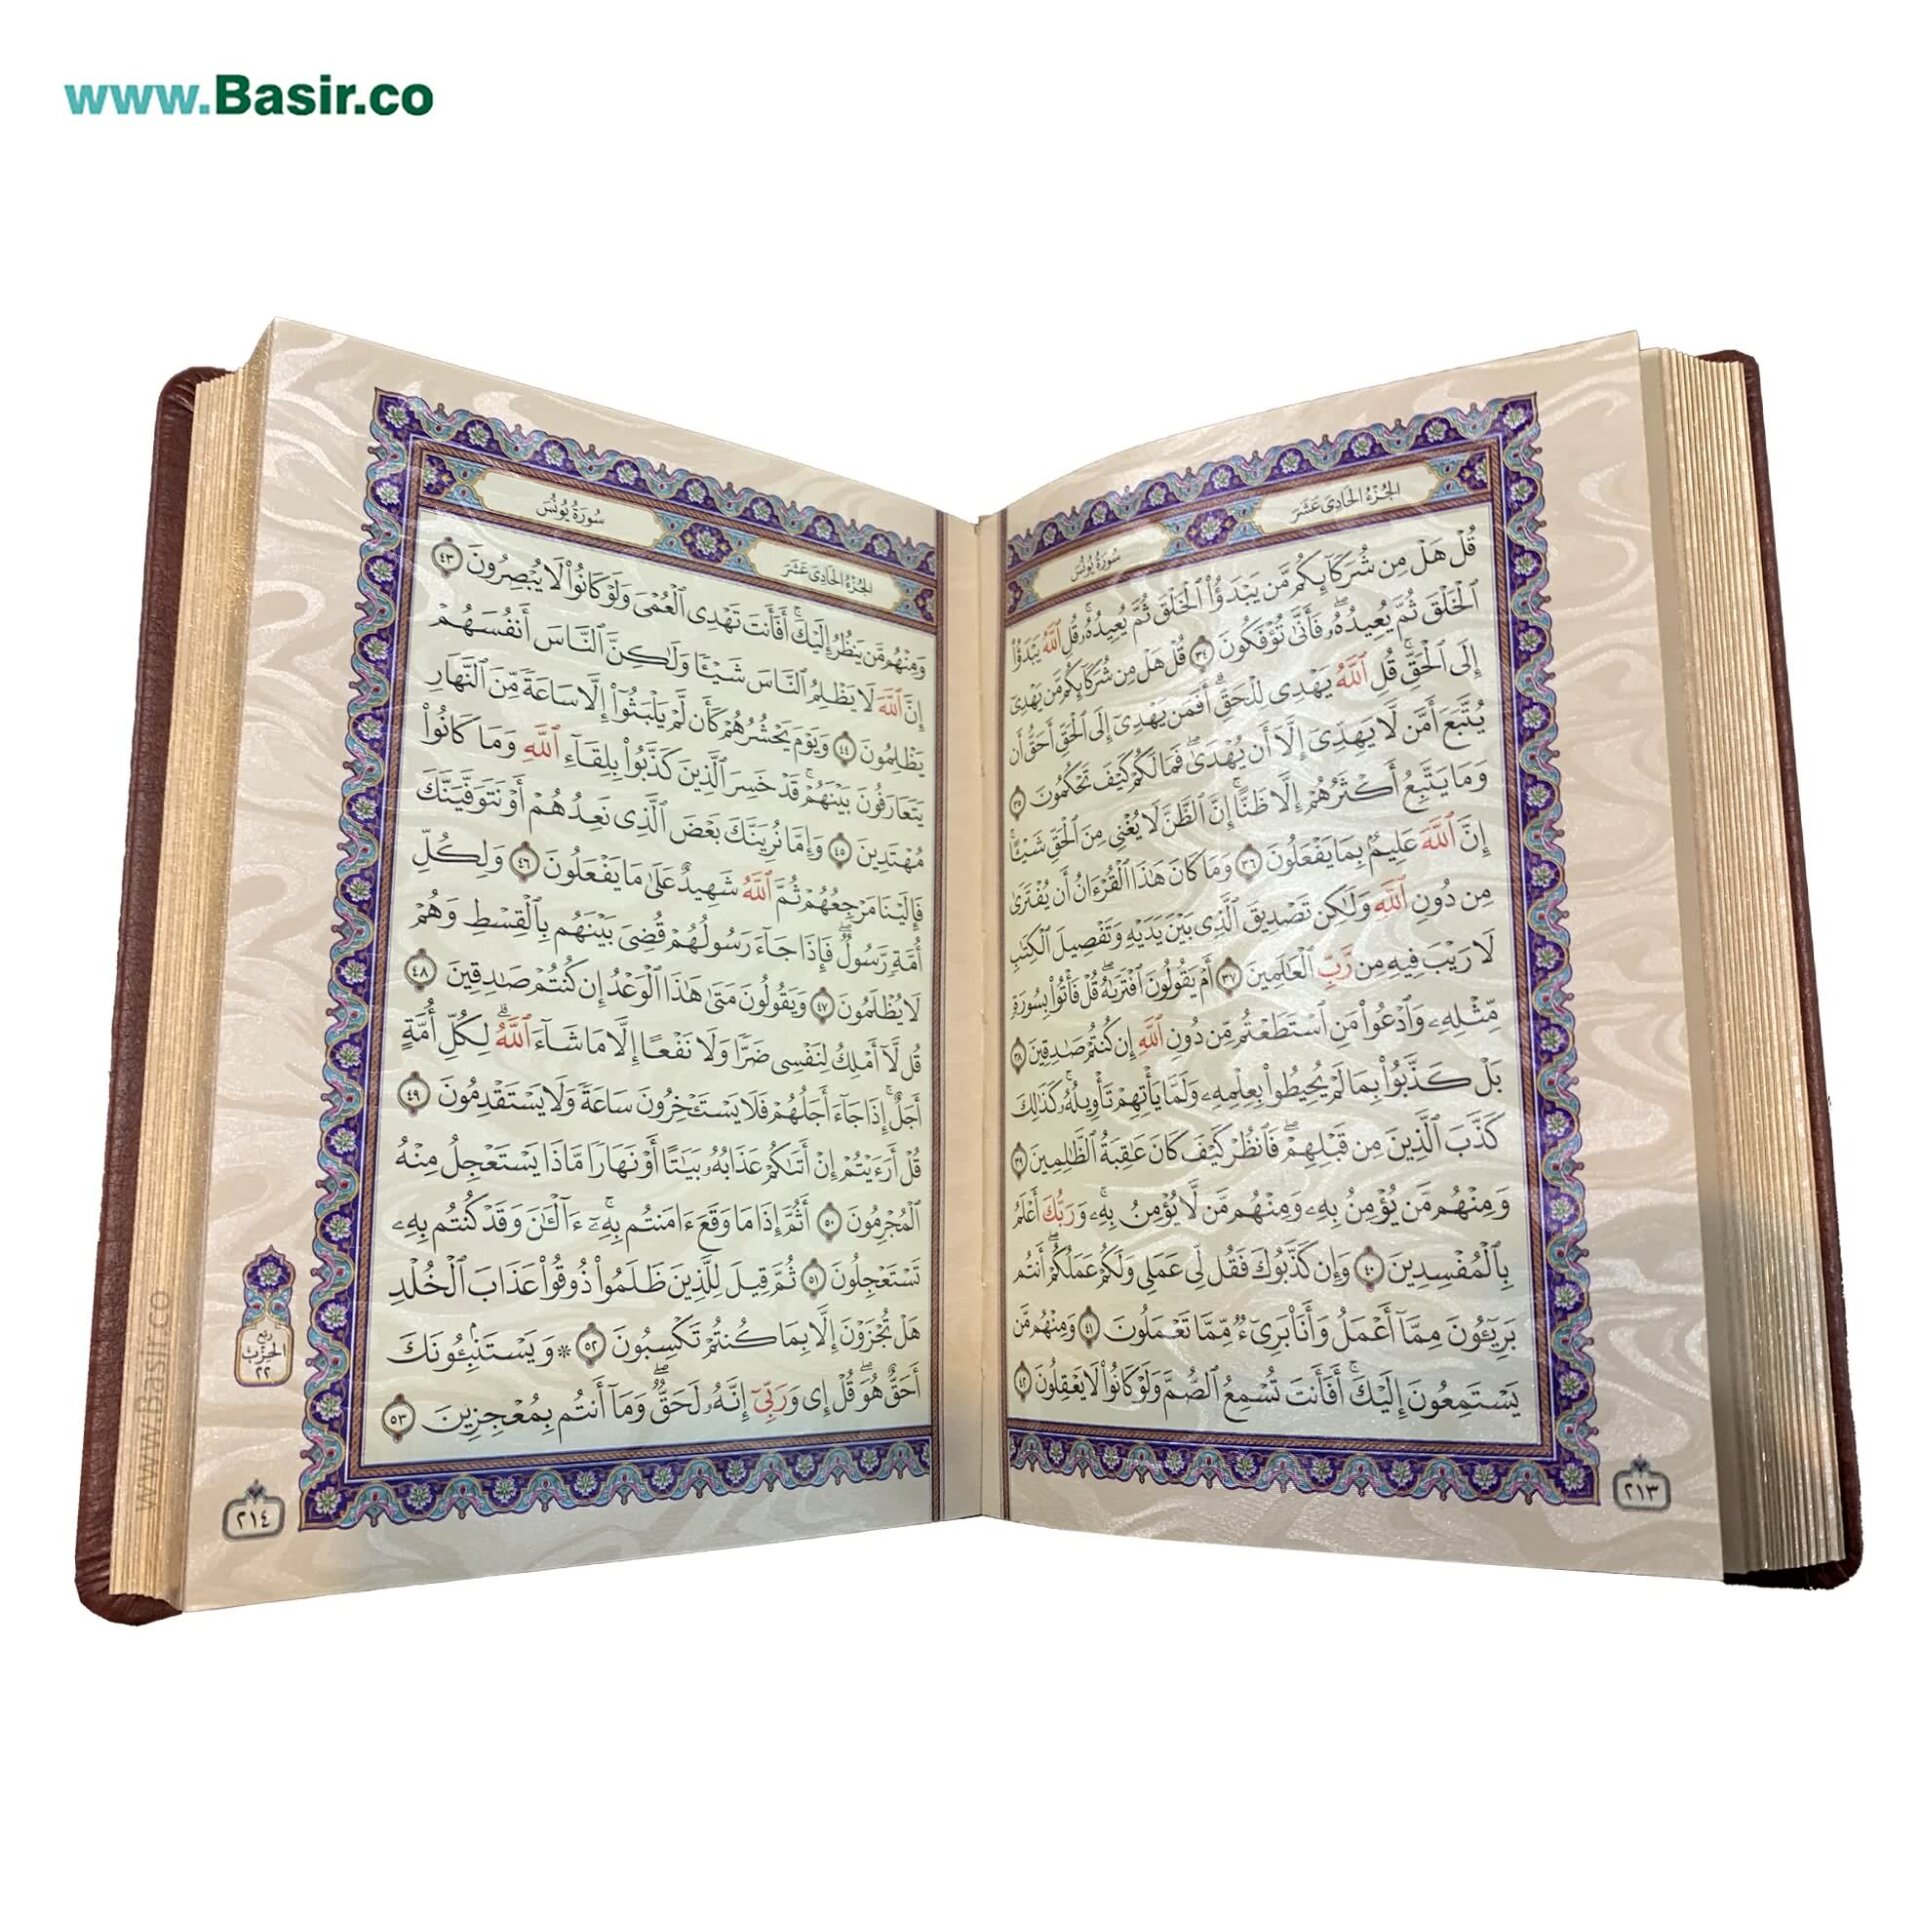 www.Basir.co
الجُزْءُ الحَادِى عَشَرَ
سُورَةُ يُونُسَ
قُلْ هَلْ مِن شُرَكَآئِكُم مَّن يَبْدَؤُا۟ ٱلْخَلْقَ ثُمَّ يُعِيدُهُۥ ۚ قُلِ ٱللَّهُ يَبْدَؤُا۟
ٱلْخَلْقَ ثُمَّ يُعِيدُهُۥ ۖ فَأَنَّىٰ تُؤْفَكُونَ ٣٤ قُلْ هَلْ مِن شُرَكَآئِكُم مَّن يَهْدِىٓ
إِلَى ٱلْحَقِّ ۚ قُلِ ٱللَّهُ يَهْدِى لِلْحَقِّ ۗ أَفَمَن يَهْدِىٓ إِلَى ٱلْحَقِّ أَحَقُّ أَن
يُتَّبَعَ أَمَّن لَّا يَهِدِّىٓ إِلَّآ أَن يُهْدَىٰ ۖ فَمَا لَكُمْ كَيْفَ تَحْكُمُونَ ٣٥
وَمَا يَتَّبِعُ أَكْثَرُهُمْ إِلَّا ظَنًّا ۚ إِنَّ ٱلظَّنَّ لَا يُغْنِى مِنَ ٱلْحَقِّ شَيْـًٔا ۚ
إِنَّ ٱللَّهَ عَلِيمٌۢ بِمَا يَفْعَلُونَ ٣٦ وَمَا كَانَ هَـٰذَا ٱلْقُرْءَانُ أَن يُفْتَرَىٰ
مِن دُونِ ٱللَّهِ وَلَـٰكِن تَصْدِيقَ ٱلَّذِى بَيْنَ يَدَيْهِ وَتَفْصِيلَ ٱلْكِتَـٰبِ
لَا رَيْبَ فِيهِ مِن رَّبِّ ٱلْعَـٰلَمِينَ ٣٧ أَمْ يَقُولُونَ ٱفْتَرَىٰهُ ۖ قُلْ فَأْتُوا۟ بِسُورَةٍ
مِّثْلِهِۦ وَٱدْعُوا۟ مَنِ ٱسْتَطَعْتُم مِّن دُونِ ٱللَّهِ إِن كُنتُمْ صَـٰدِقِينَ ٣٨
بَلْ كَذَّبُوا۟ بِمَا لَمْ يُحِيطُوا۟ بِعِلْمِهِۦ وَلَمَّا يَأْتِهِمْ تَأْوِيلُهُۥ ۚ كَذَٰلِكَ
كَذَّبَ ٱلَّذِينَ مِن قَبْلِهِمْ ۖ فَٱنظُرْ كَيْفَ كَانَ عَـٰقِبَةُ ٱلظَّـٰلِمِينَ ٣٩
وَمِنْهُم مَّن يُؤْمِنُ بِهِۦ وَمِنْهُم مَّن لَّا يُؤْمِنُ بِهِۦ ۚ وَرَبُّكَ أَعْلَمُ
بِٱلْمُفْسِدِينَ ٤٠ وَإِن كَذَّبُوكَ فَقُل لِّى عَمَلِى وَلَكُمْ عَمَلُكُمْ ۖ أَنتُم
بَرِيٓـُٔونَ مِمَّآ أَعْمَلُ وَأَنَا۠ بَرِىٓءٌ مِّمَّا تَعْمَلُونَ ٤١ وَمِنْهُم مَّن
يَسْتَمِعُونَ إِلَيْكَ ۚ أَفَأَنتَ تُسْمِعُ ٱلصُّمَّ وَلَوْ كَانُوا۟ لَا يَعْقِلُونَ ٤٢
٢١٣
الجُزْءُ الحَادِى عَشَرَ
سُورَةُ يُونُسَ
وَمِنْهُم مَّن يَنظُرُ إِلَيْكَ ۚ أَفَأَنتَ تَهْدِى ٱلْعُمْىَ وَلَوْ كَانُوا۟ لَا يُبْصِرُونَ ٤٣
إِنَّ ٱللَّهَ لَا يَظْلِمُ ٱلنَّاسَ شَيْـًٔا وَلَـٰكِنَّ ٱلنَّاسَ أَنفُسَهُمْ
يَظْلِمُونَ ٤٤ وَيَوْمَ يَحْشُرُهُمْ كَأَن لَّمْ يَلْبَثُوٓا۟ إِلَّا سَاعَةً مِّنَ ٱلنَّهَارِ
يَتَعَارَفُونَ بَيْنَهُمْ ۚ قَدْ خَسِرَ ٱلَّذِينَ كَذَّبُوا۟ بِلِقَآءِ ٱللَّهِ وَمَا كَانُوا۟
مُهْتَدِينَ ٤٥ وَإِمَّا نُرِيَنَّكَ بَعْضَ ٱلَّذِى نَعِدُهُمْ أَوْ نَتَوَفَّيَنَّكَ
فَإِلَيْنَا مَرْجِعُهُمْ ثُمَّ ٱللَّهُ شَهِيدٌ عَلَىٰ مَا يَفْعَلُونَ ٤٦ وَلِكُلِّ
أُمَّةٍ رَّسُولٌ ۖ فَإِذَا جَآءَ رَسُولُهُمْ قُضِىَ بَيْنَهُم بِٱلْقِسْطِ وَهُمْ
لَا يُظْلَمُونَ ٤٧ وَيَقُولُونَ مَتَىٰ هَـٰذَا ٱلْوَعْدُ إِن كُنتُمْ صَـٰدِقِينَ ٤٨
قُل لَّآ أَمْلِكُ لِنَفْسِى ضَرًّا وَلَا نَفْعًا إِلَّا مَا شَآءَ ٱللَّهُ ۗ لِكُلِّ أُمَّةٍ
أَجَلٌ ۚ إِذَا جَآءَ أَجَلُهُمْ فَلَا يَسْتَـْٔخِرُونَ سَاعَةً وَلَا يَسْتَقْدِمُونَ ٤٩
قُلْ أَرَءَيْتُمْ إِنْ أَتَىٰكُمْ عَذَابُهُۥ بَيَـٰتًا أَوْ نَهَارًا مَّاذَا يَسْتَعْجِلُ مِنْهُ
ٱلْمُجْرِمُونَ ٥٠ أَثُمَّ إِذَا مَا وَقَعَ ءَامَنتُم بِهِۦٓ ۚ ءَآلْـَٔـٰنَ وَقَدْ كُنتُم بِهِۦ
تَسْتَعْجِلُونَ ٥١ ثُمَّ قِيلَ لِلَّذِينَ ظَلَمُوا۟ ذُوقُوا۟ عَذَابَ ٱلْخُلْدِ
هَلْ تُجْزَوْنَ إِلَّا بِمَا كُنتُمْ تَكْسِبُونَ ٥٢ * وَيَسْتَنۢبِـُٔونَكَ
أَحَقٌّ هُوَ ۖ قُلْ إِى وَرَبِّىٓ إِنَّهُۥ لَحَقٌّ ۖ وَمَآ أَنتُم بِمُعْجِزِينَ ٥٣
ربع
الحزب
٢٢
٢١٤
www.Basir.co